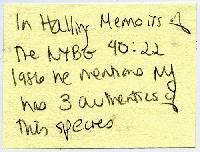 In Halling Memoirs of
the NYBG 40:22
1986 he mentions NY
has 3 authentics of
this species